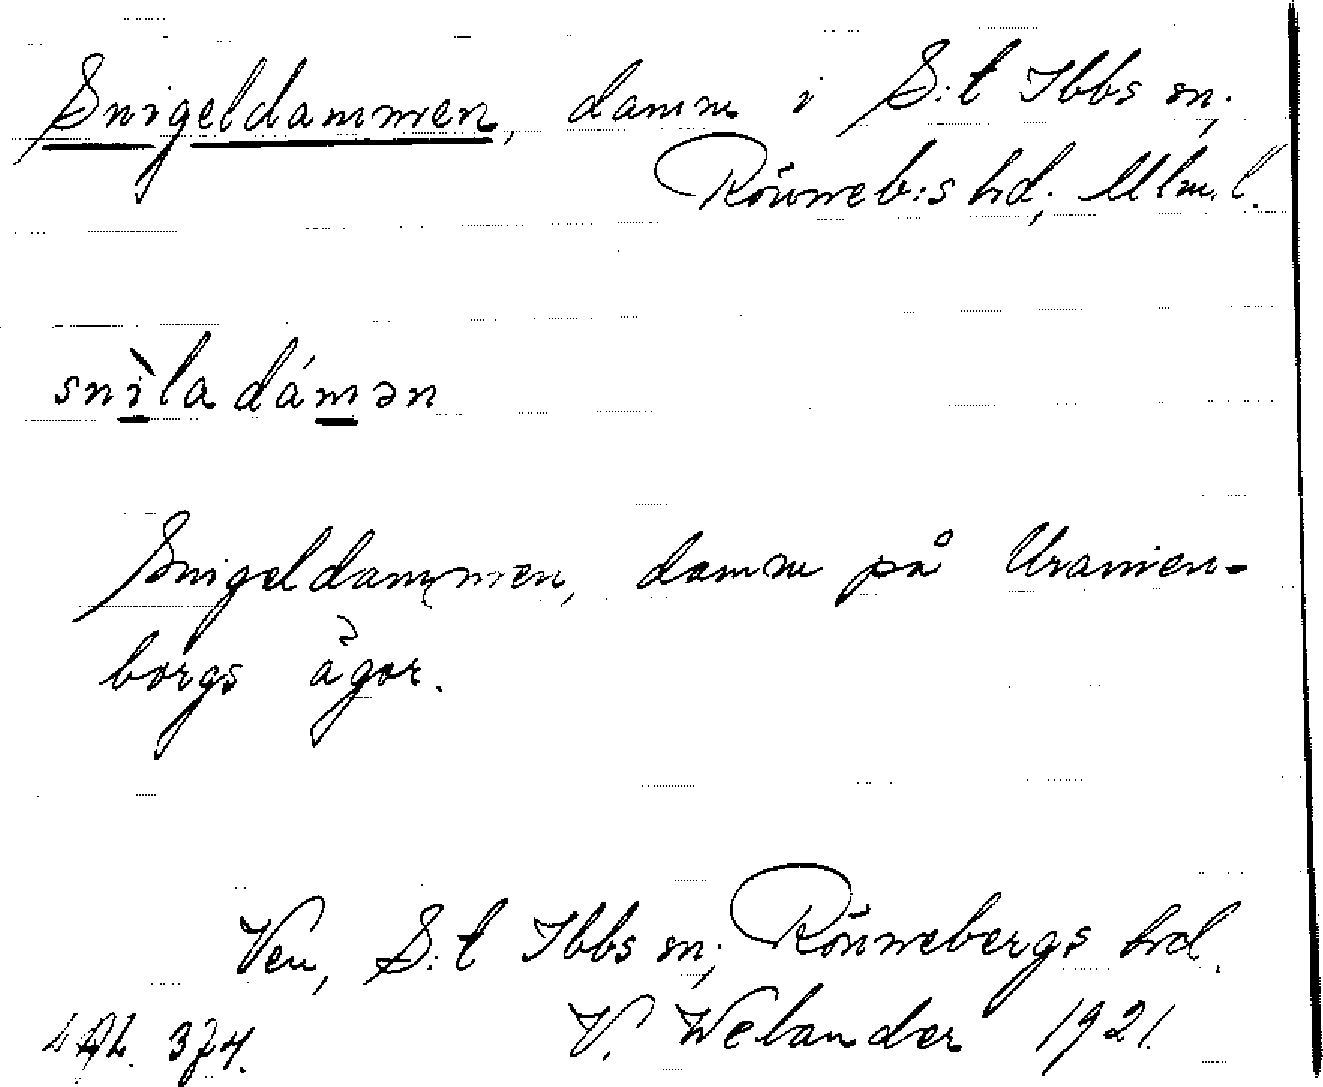 Snigeldammen, damm i S:t Ibbs sn,
Rönneb:s hd, Mlm. l.
snìladámən
Snigeldammen, damm på Uranien-
borgs ägor.
Ven, S:t Ibbs sn, Rönnebergs hd.
374. V. Welander 1921.